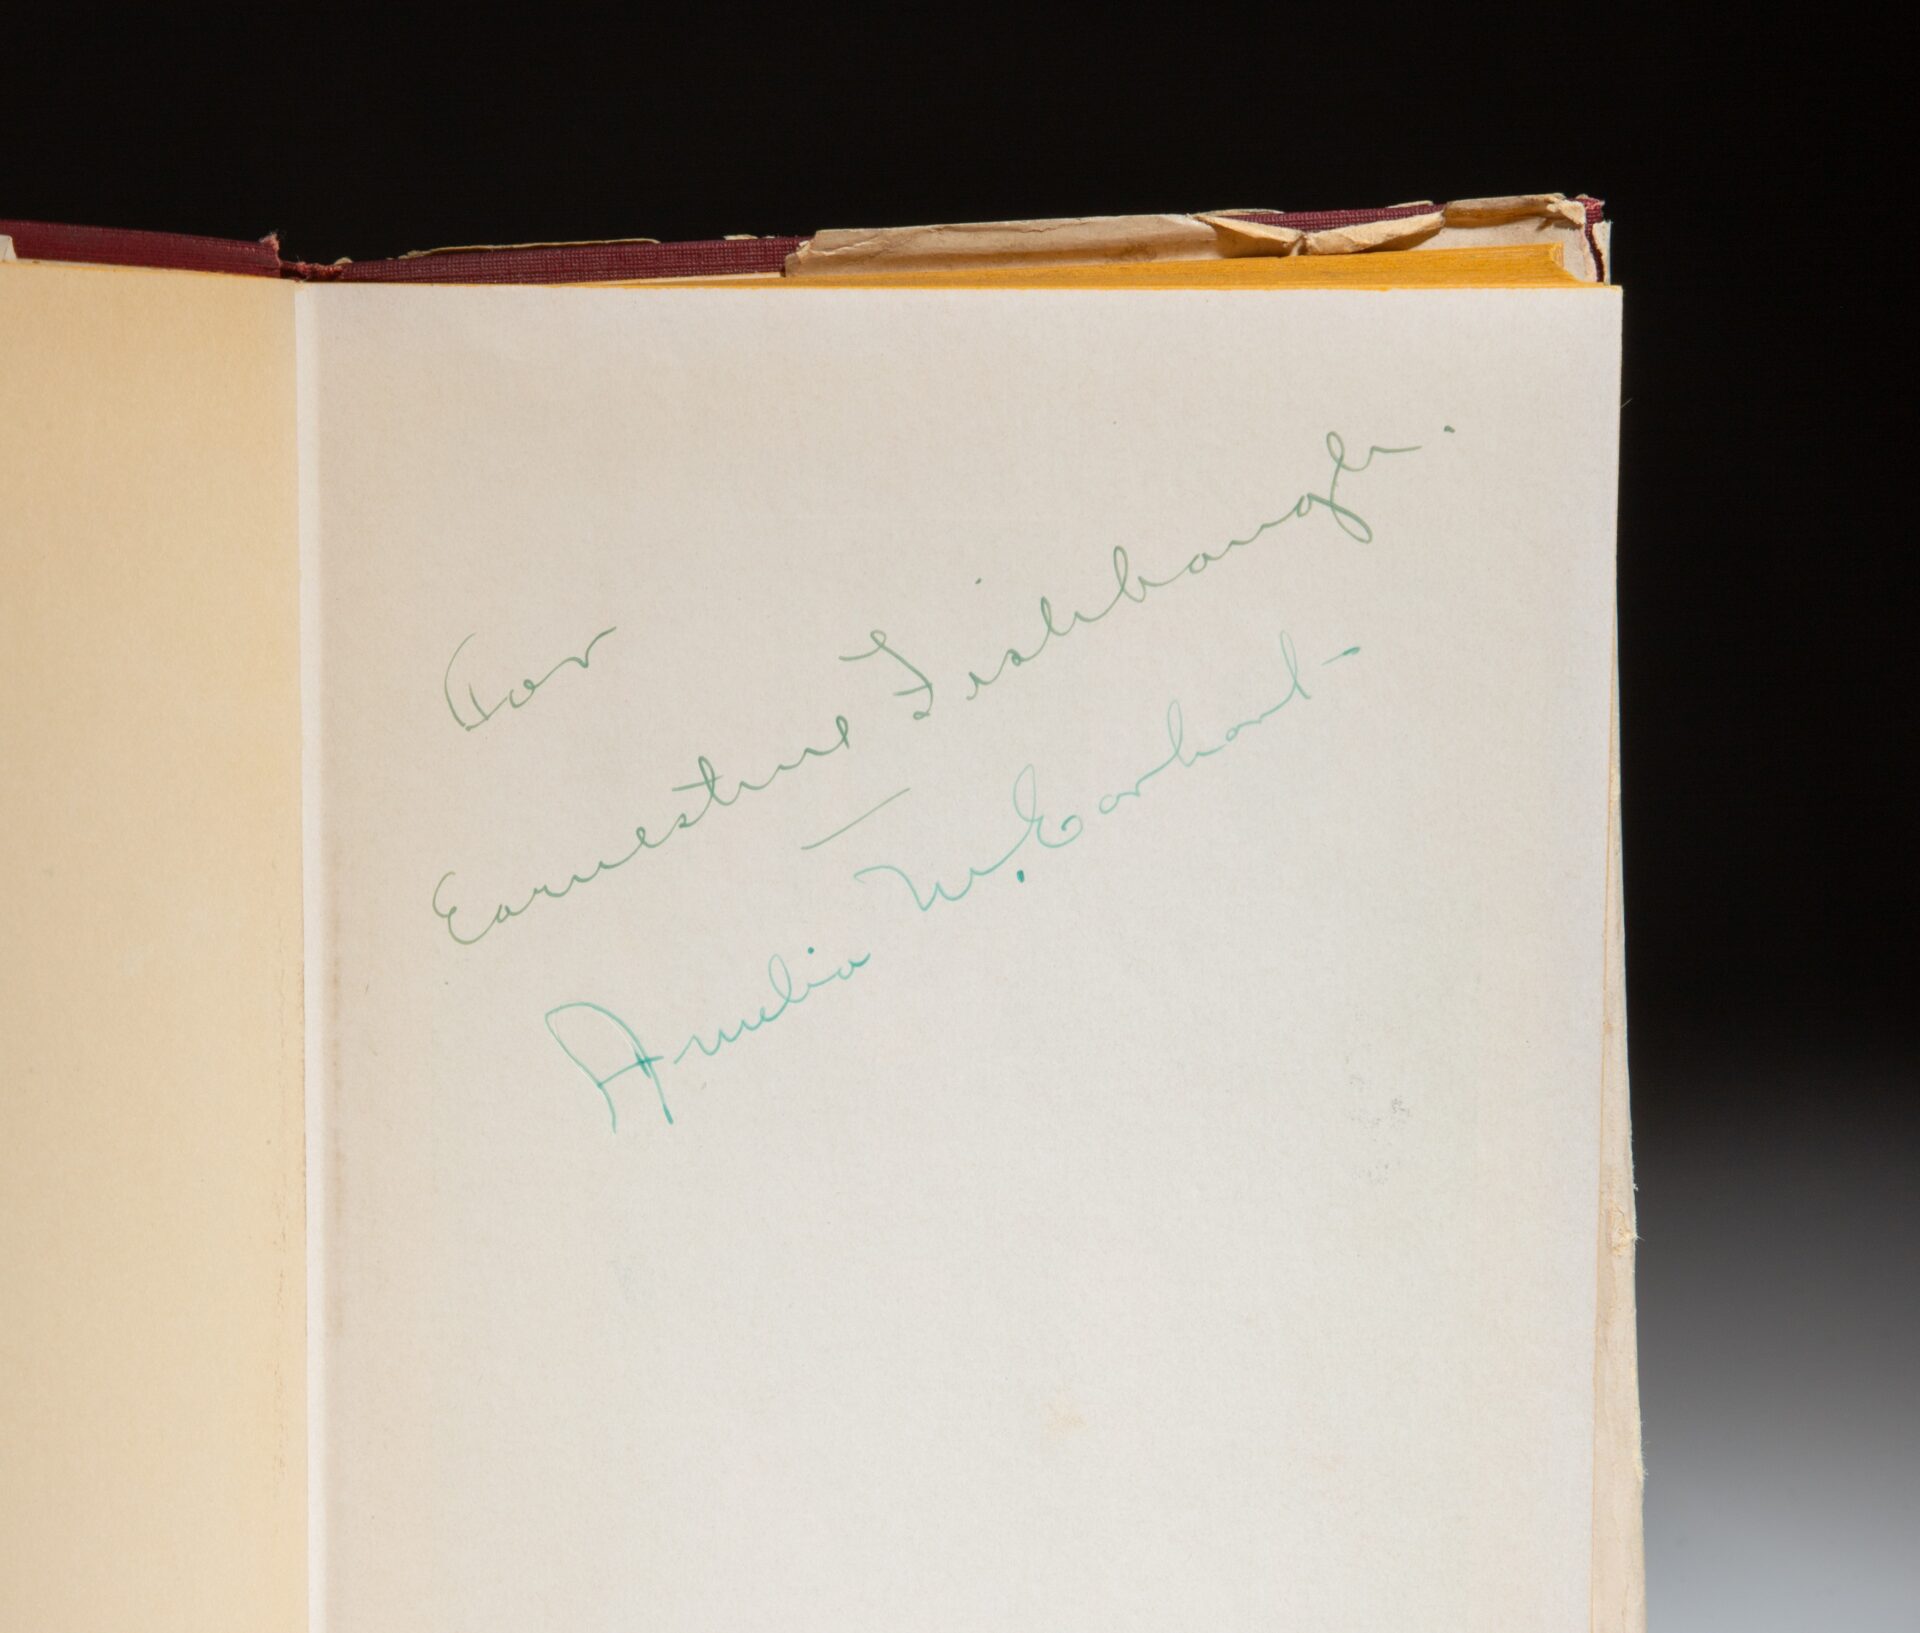 For
Earnestine Fishbaugh.
—
Amelia M. Earhart-